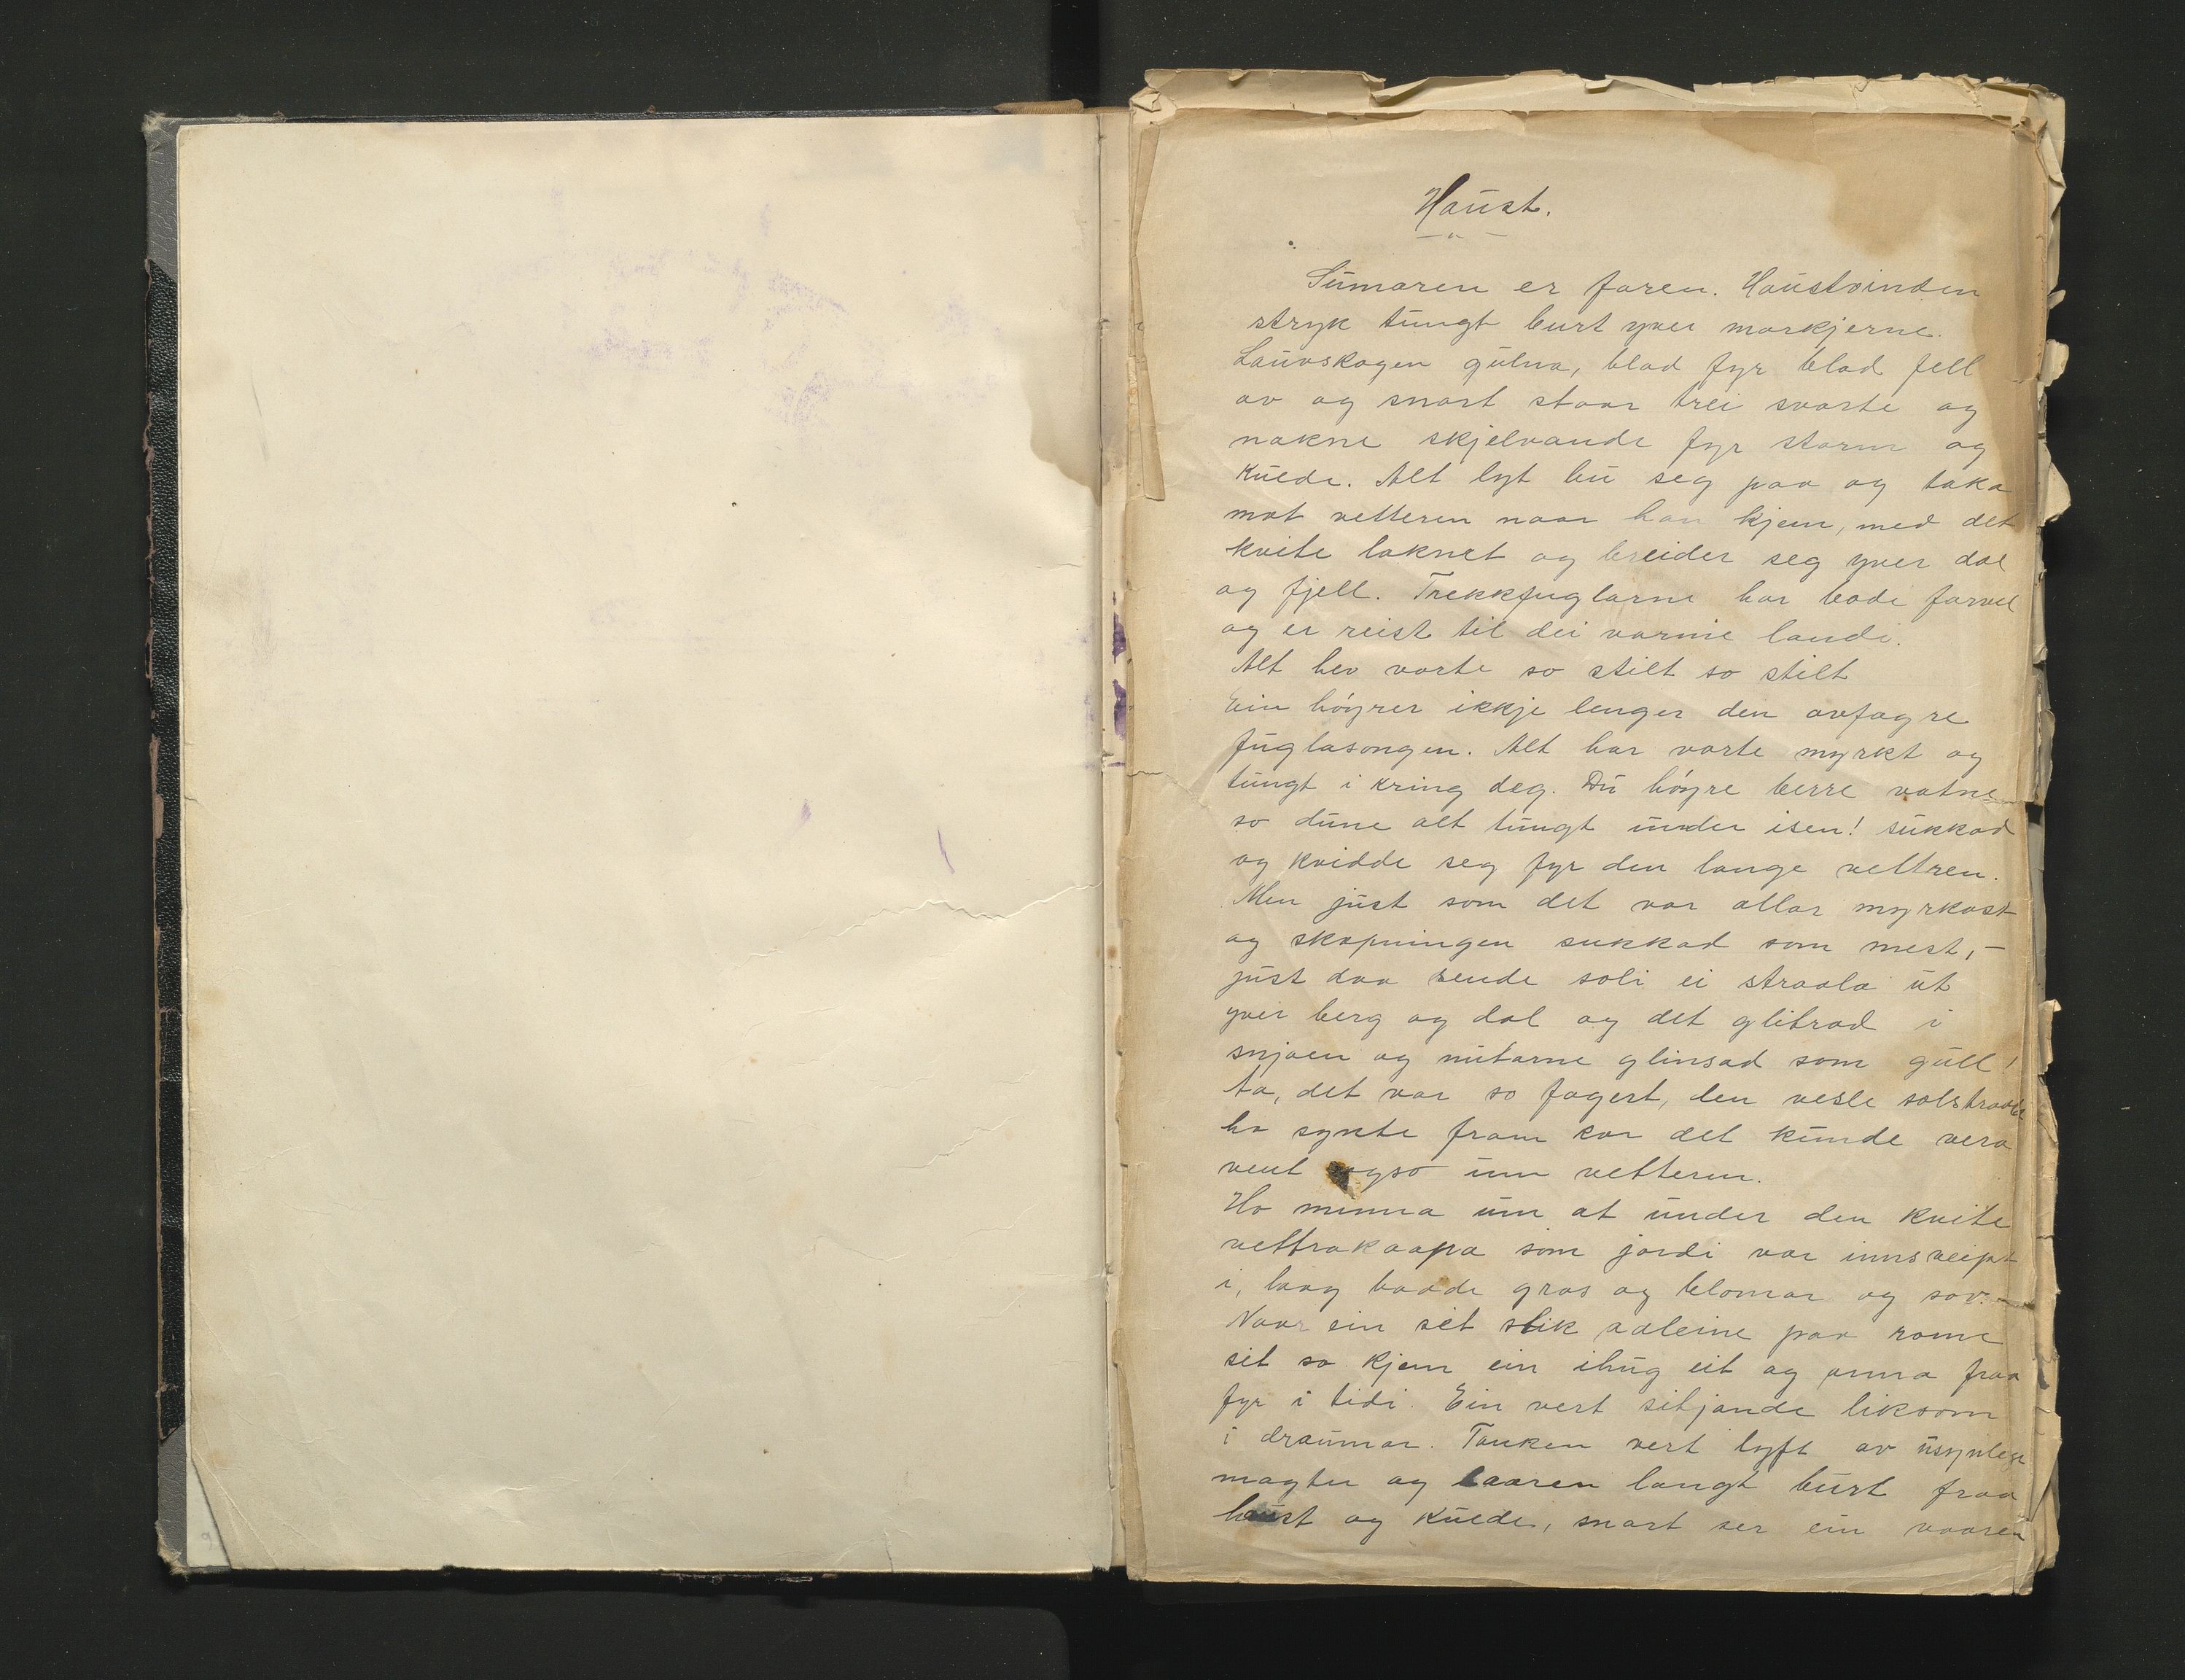 Haust.
Sumaren er faren. Haustvinden
stryk tungt burt yver markjerne.
Lauvskogen gulna, blad fyr blad fell
av og snart staar trei svarte og
nakne skjelvande fyr storm og
Kulde. Alt lyt bu seg paa og taka
mot vetteren naar han kjem, med det
kvite laknet og breider seg yver dal
og fjell. Trekkfuglarne har bode farvel
og er reist til dei varme landi.
Alt hev vorte so stilt so stilt
Ein høyrer ikkje lenger den ovfagre
fuglasongen. Alt har vorte myrkt og
tungt i kring deg. Du høyre berre vatne
so dune alt tungt under isen! sukkad
og kvidde seg fyr den lange vettren.
Men just som det var allar myrkast
og skapningen sukkad som mest, –
just daa sende soli ei straala ut
yver berg og dal og det glitrad i
snjoen og nutarne glinsad som gull!
Aa, det var so fagert, den vesle solstraala
ho synte fram kor det kunde vera
vent ogso um vetteren.
Ho minna um at under den kvite
vettrakaapa som jordi var innsveipt
i, laag baade gras og blomar og sov. –
Naar ein sit slik aaleine paa rome
sit so kjem ein ihug eit og anna fraa
fyr i tidi. Ein vert sitjande liksom
i draumar. Tanken vert lyft av usynlege
magter og baaren langt burt fraa
haust og Kulde, snart ser ein vaaren